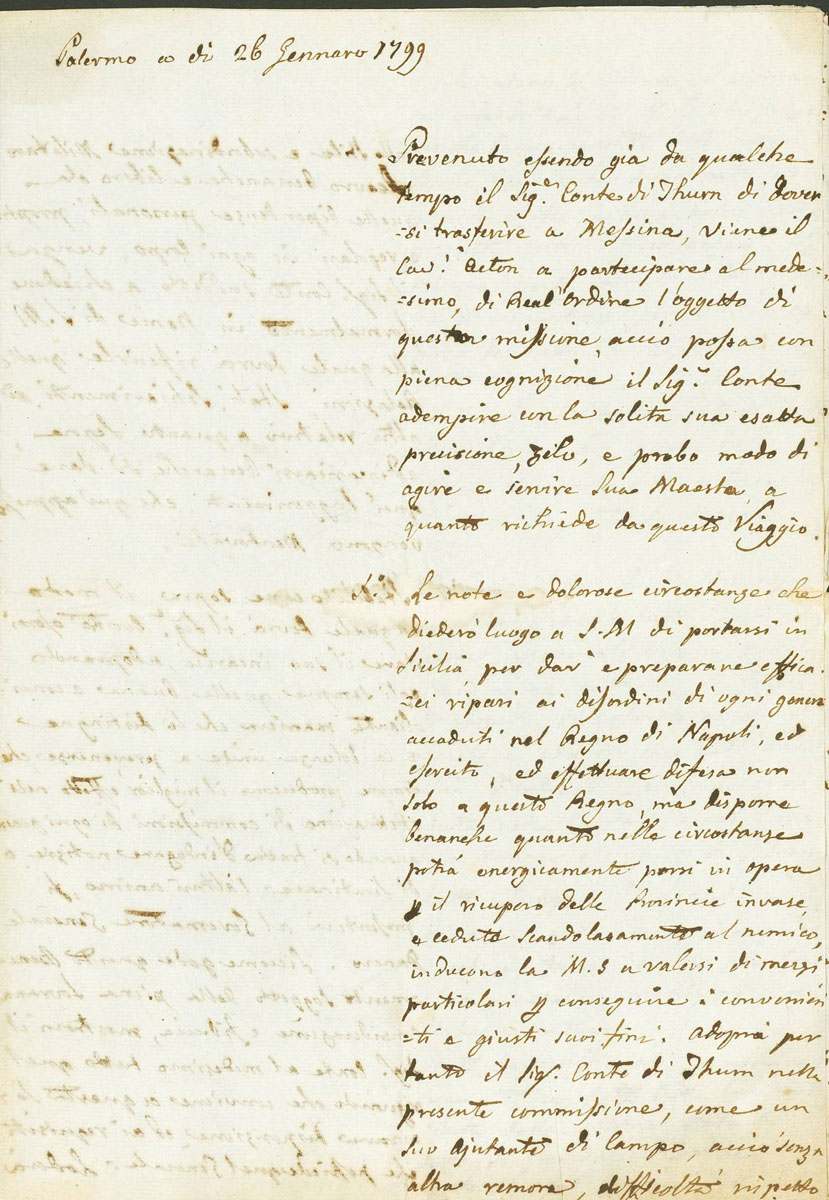 Palermo a di 26 Gennaro 1799
Prevenuto essendo gia da qualche
tempo il Sig.r Conte di Thurn di dover
=si trasferire a Messina, viene il
Cav.r Acton a partecipare al mede=
=simo, di Real Ordine l'oggetto di
questa missione acciò possa con
piena cognizione il Sig.r Conte
adempire con la solita sua esatta
precisione, zelo, e probo modo di
agire e servire Sua Maestà, a
quanto richiede da questo Viaggio.
1.o Le note e dolorose circostanze che
diedero luogo a S.M di portarsi in
Sicilia, per dar' e preparare effica=
=ci ripari ai disordini di ogni genere
accaduti nel Regno di Napoli, ed
esercito, ed effettuare difesa non
solo a questo Regno, ma disporre
benanche quanto nelle circostanze
potrà energicamente porsi in opera
p il ricupero delle Provincie invase,
e cedute scandolasamente al nemico,
inducono la M.S a valersi di mezzi
particolari p conseguire i convenien
=ti e giusti suoi fini. Adopra per
tanto il Sig.r Conte di Thurn nella
presente commissione, come un
suo Ajutante di Campo, acciò senza
altra remora, difficoltà rispetto